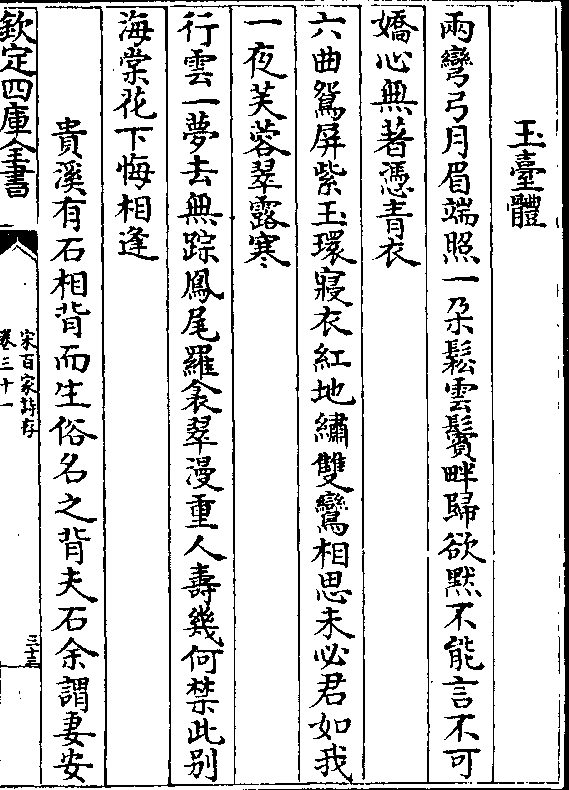 玉臺體
兩彎弓月眉端照一朶鬆雲鬢畔歸欲黙不能言不可
嬌心無著憑青衣
六曲鴛屏紫玉環寢衣紅地繡雙鸞相思未必君如我
一夜芙蓉翠露寒
行雲一夢去無踪鳳尾羅衾翠漫重人壽幾何禁此别
海棠花下悔相逢
貴溪有石相背而生俗名之背夫石余謂妻安
欽定四庫全書
宋百家詩存
卷三十一
三十三